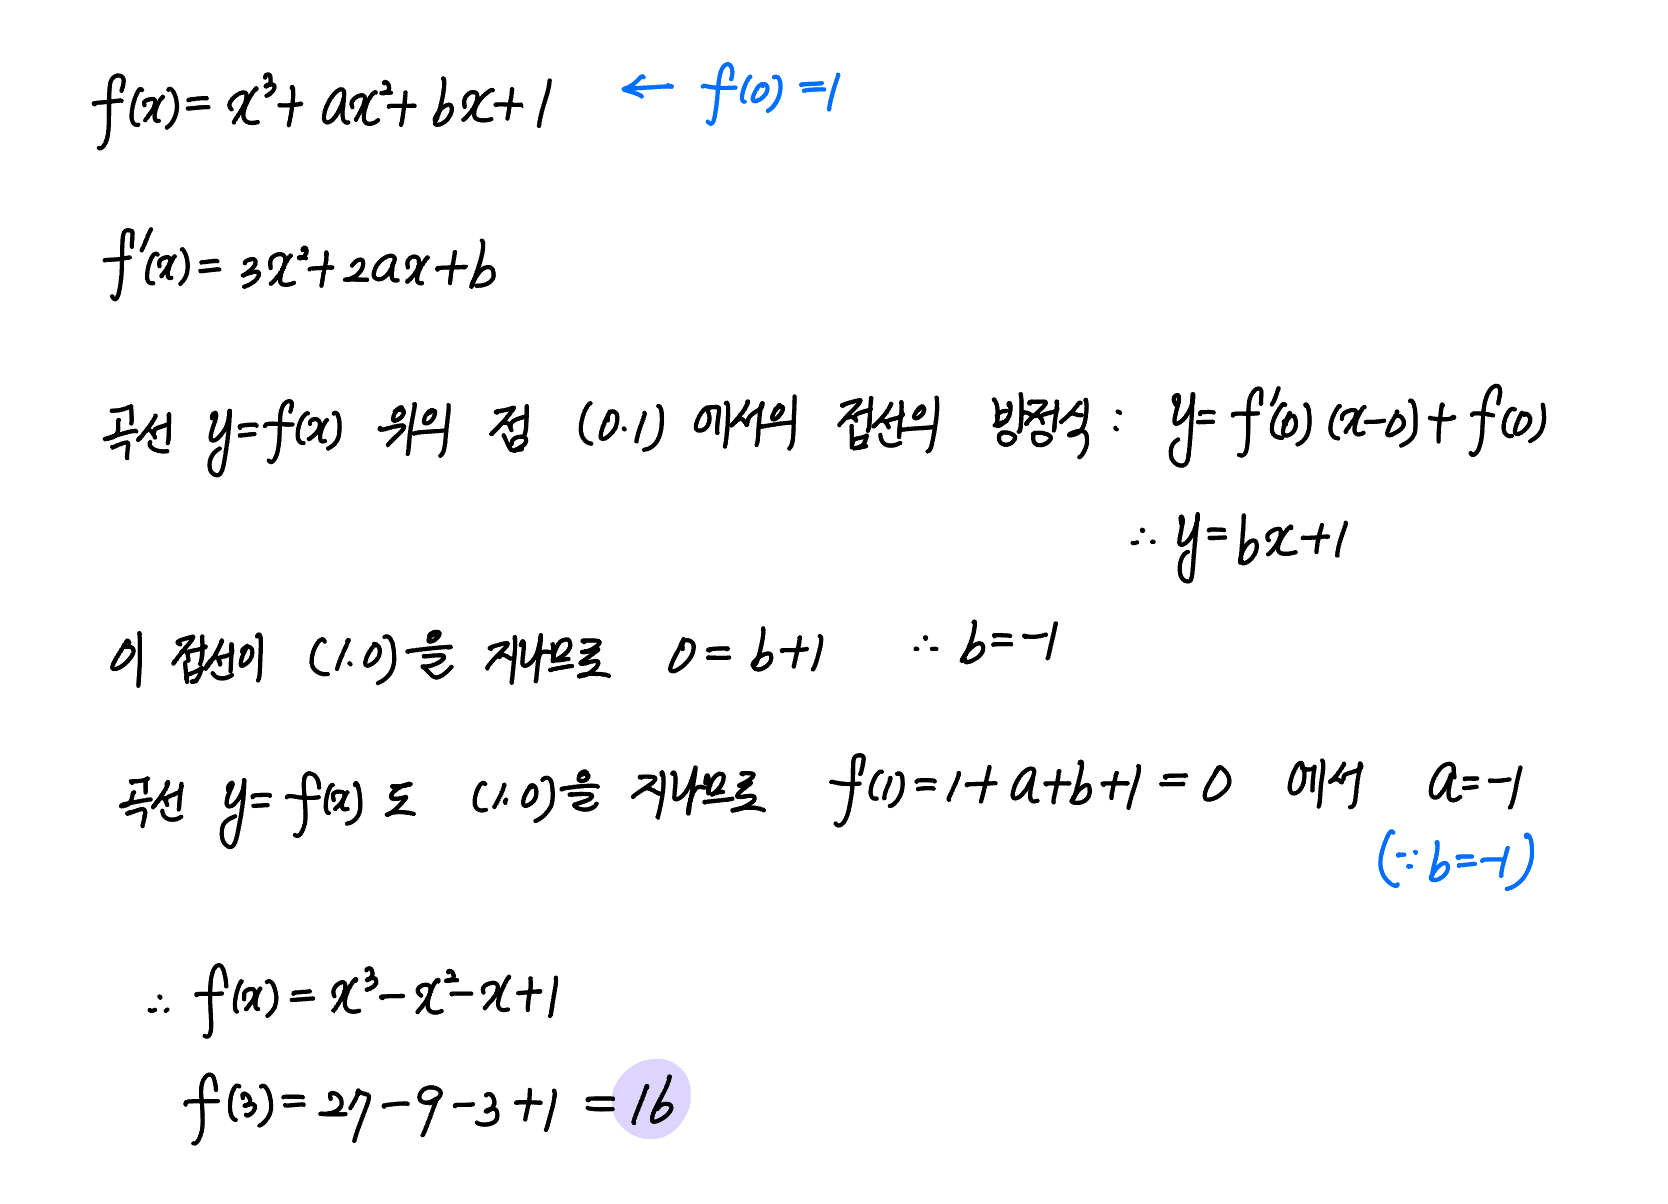 f(x) = x³ + ax² + bx + 1 ← f(0) = 1
f'(x) = 3x² + 2ax + b
곡선 y = f(x) 위의 점 (0.1) 에서의 접선의 방정식 : y = f'(0) (x-0) + f(0)
∴ y = bx + 1
이 접선이 (1.0)을 지나므로 0 = b+1 ∴ b = -1
곡선 y = f(x) 도 (1.0)을 지나므로 f(1) = 1 + a + b + 1 = 0 에서 a = -1
(∵ b = -1)
∴ f(x) = x³ - x² - x + 1
f(3) = 27 - 9 - 3 + 1 = 16